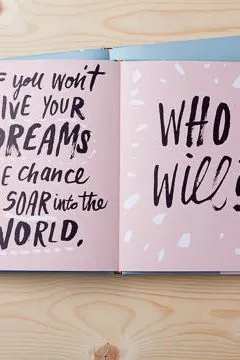 F you won't
IVE YOUR
DREAMS
E CHANCE
SOAR into the
WORLD,
WHO
Will